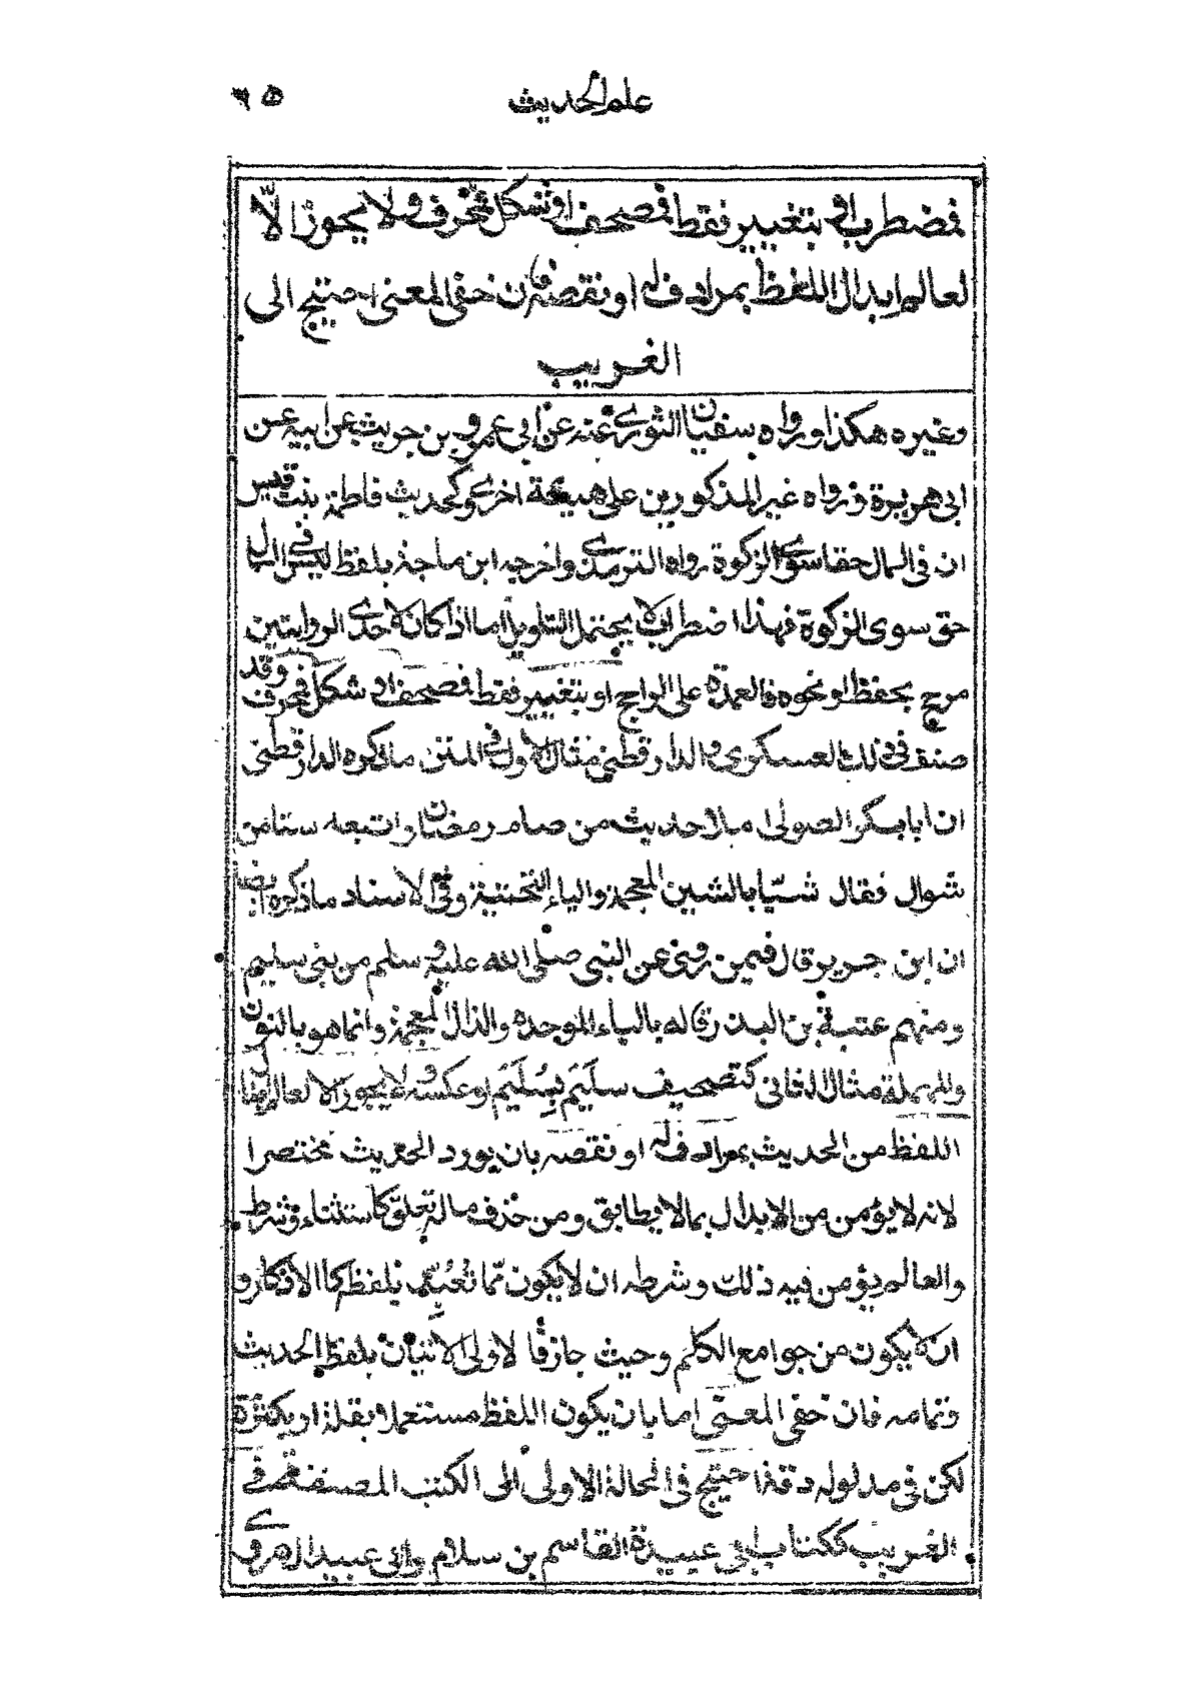 علم الحديث ٦٥
فمضطرب او بتغيير نقط فمصحف او شكل فمحرف ولا يجوز الّا
لعالم ابدال اللفظ بمرادف له او نقصه فان خفى المعنى احتيج الى
الغريب
وغيره هكذا ورواه سفيان الثوري عنه عن ابي عمرو بن حريث عن ابيه عن
ابي هريرة ورواه غير المذكورين على هيئة اخرى وكحديث فاطمة بنت قيس
ان في المال حقا سوى الزكوة رواه الترمذي واخرجه ابن ماجة بلفظ ليس في المال
حق سوى الزكوة فهذا اضطراب لا يحتمل التاويل اما اذا كانه لاحدى الروايتين
مرجح بحفظ او نحوه فالعمدة على الراجح او بتغيير نقط فمصحف او شكل فمحرف وقد
صنف في ذلك العسكري والدارقطني مثال الاول في المتن ما ذكره الدارقطني
ان ابا بكر الصولى املا حديث من صام رمضان واتبعه ستا من
شوال فقال شيّا بالشين المعجمة والياء التحتية وفي الاسناد ما ذكره ايضا
ان ابن جرير قال فيمن روى عن النبي صلى الله عليه وسلم من بني سليم
ومنهم عتبة بن البذر قاله بالباء الموحدة والذال المعجمة وانما هو بالنون
والمهملة مثال الثاني كتصحيف سليم بسليم او عكسه ولا يجوز الا لعالم
اللفظ من الحديث بمرادف له او نقصه بان يورد الحديث مختصرا
لانه لا يؤمن من الابدال بما لا يطابق ومن حذف ماله تعلق كاستثناء وشرط
والعالم يؤمن فيه ذلك وشرطه ان لا يكون مما تعبد بلفظه كالاذكار و
ان لا يكون من جوامع الكلم وحيث جاز فالاولى الاتيان بلفظ الحديث
وتمامه فان خفى المعنى اما بان يكون اللفظ مستعملا بقلة او بكثرة
لكن في مدلوله دقة احتيج في الحالة الاولى الى الكتب المصنفة في
الغريب ككتاب ابي عبيدة القاسم بن سلام وابي عبيد الهروي